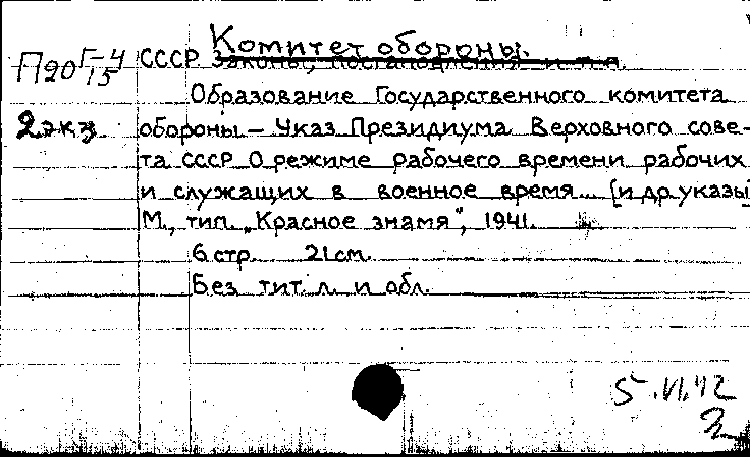 Комитет обороны.
П20 Г-4/15 СССР Законы, постановления и т.д.
Образование Государственного комитета
2 экз обороны. – Указ Президиума Верховного сове-
та СССР О режиме рабочего времени рабочих
и служащих в военное время... [и др. указы]
М., тип. „Красное знамя", 1941.
6 стр. 21 см.
Без тит. л. и обл.
5.VI.42